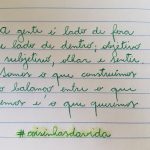 A gente é lado de fora
e lado de dentro, objetivo
e subjetivo, olhar e sentir.
Somos o que construímos
o balanço entre o que
temos e o que queremos
#coisinhasdavida